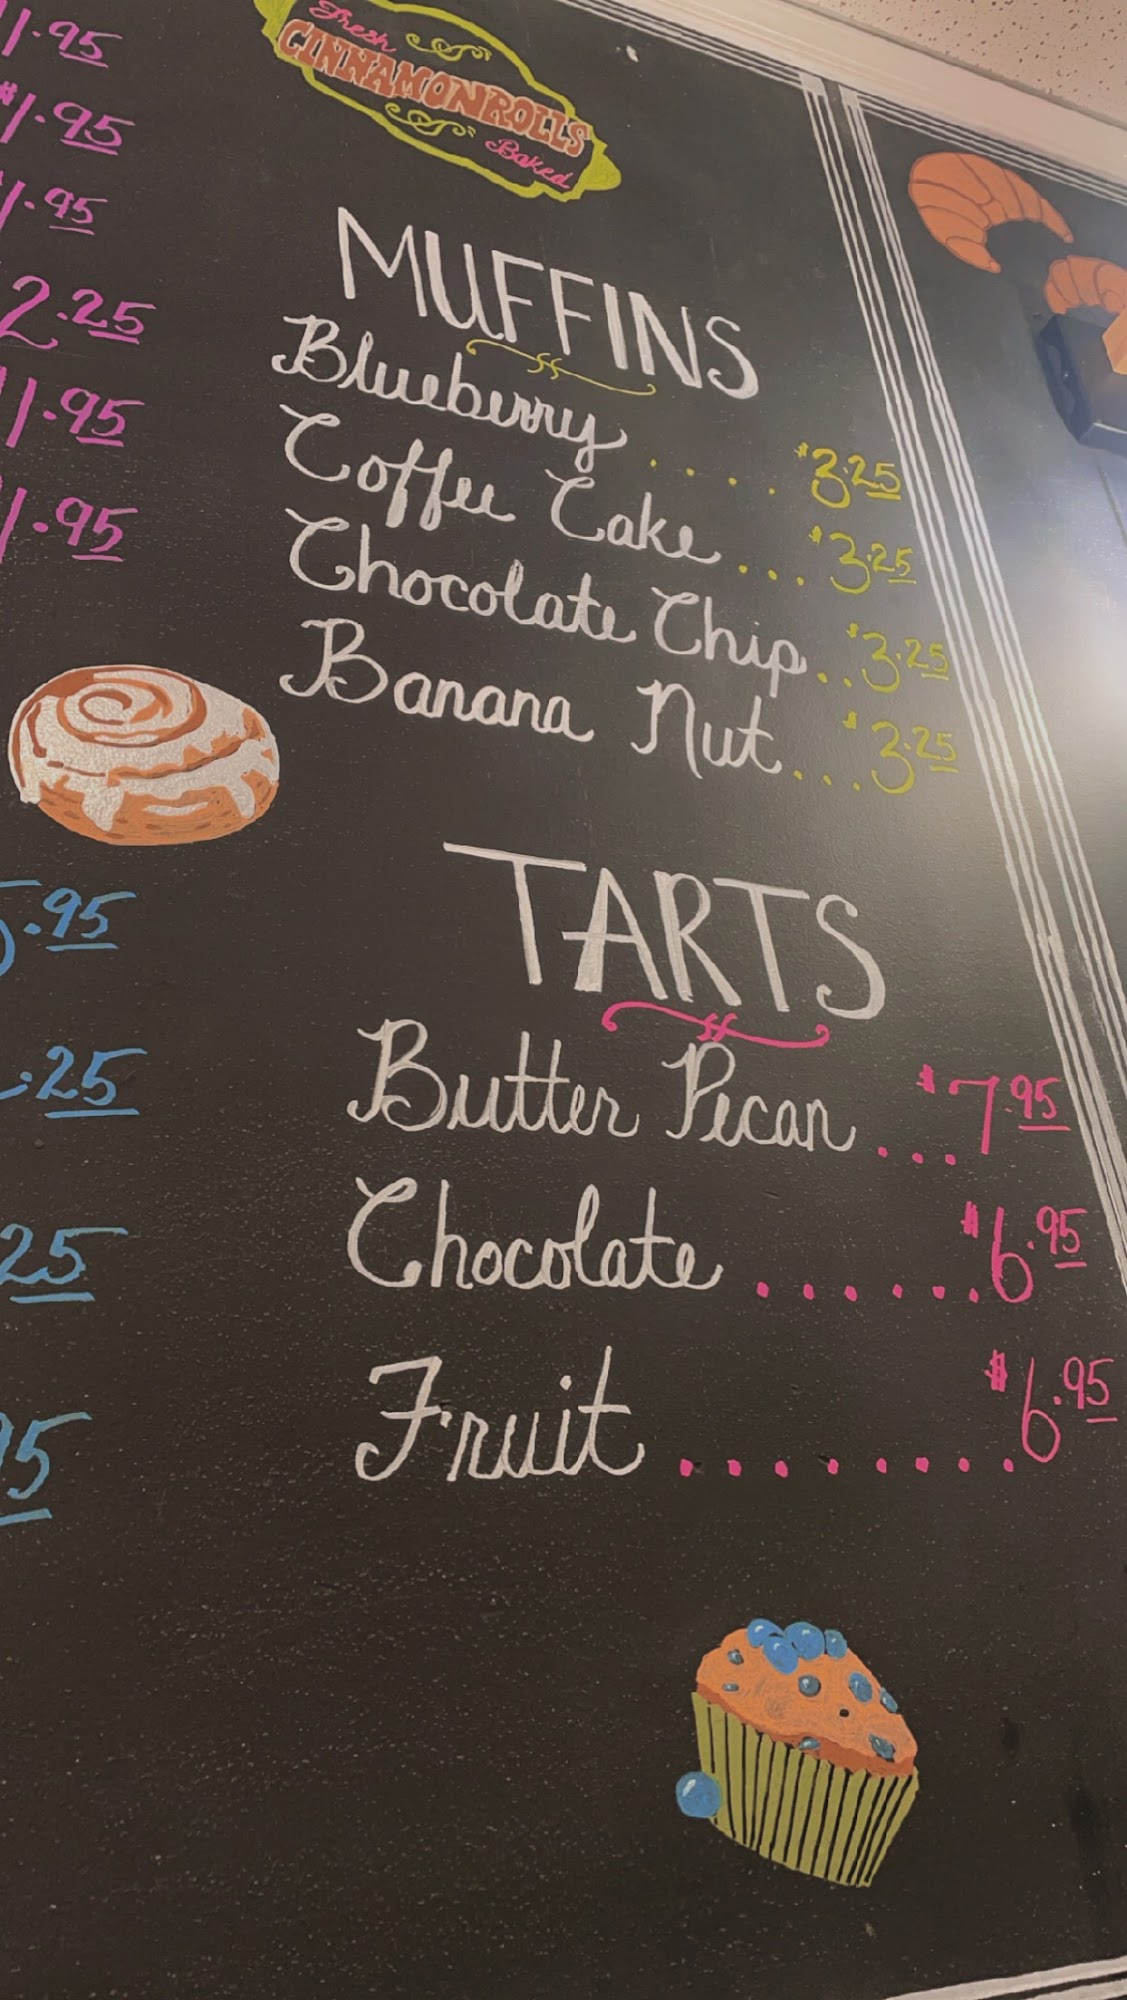 Fresh
CINNAMONROLLS
Baked
1.95
$1.95
1.95
2.25
1.95
1.95
.95
.25
25
95
MUFFINS
Blueberry ..... $3.25
Coffee Cake ... $3.25
Chocolate Chip .. $3.25
Banana Nut ... $3.25
TARTS
Butter Pecan ... $7.95
Chocolate ...... $6.95
Fruit ........ $6.95